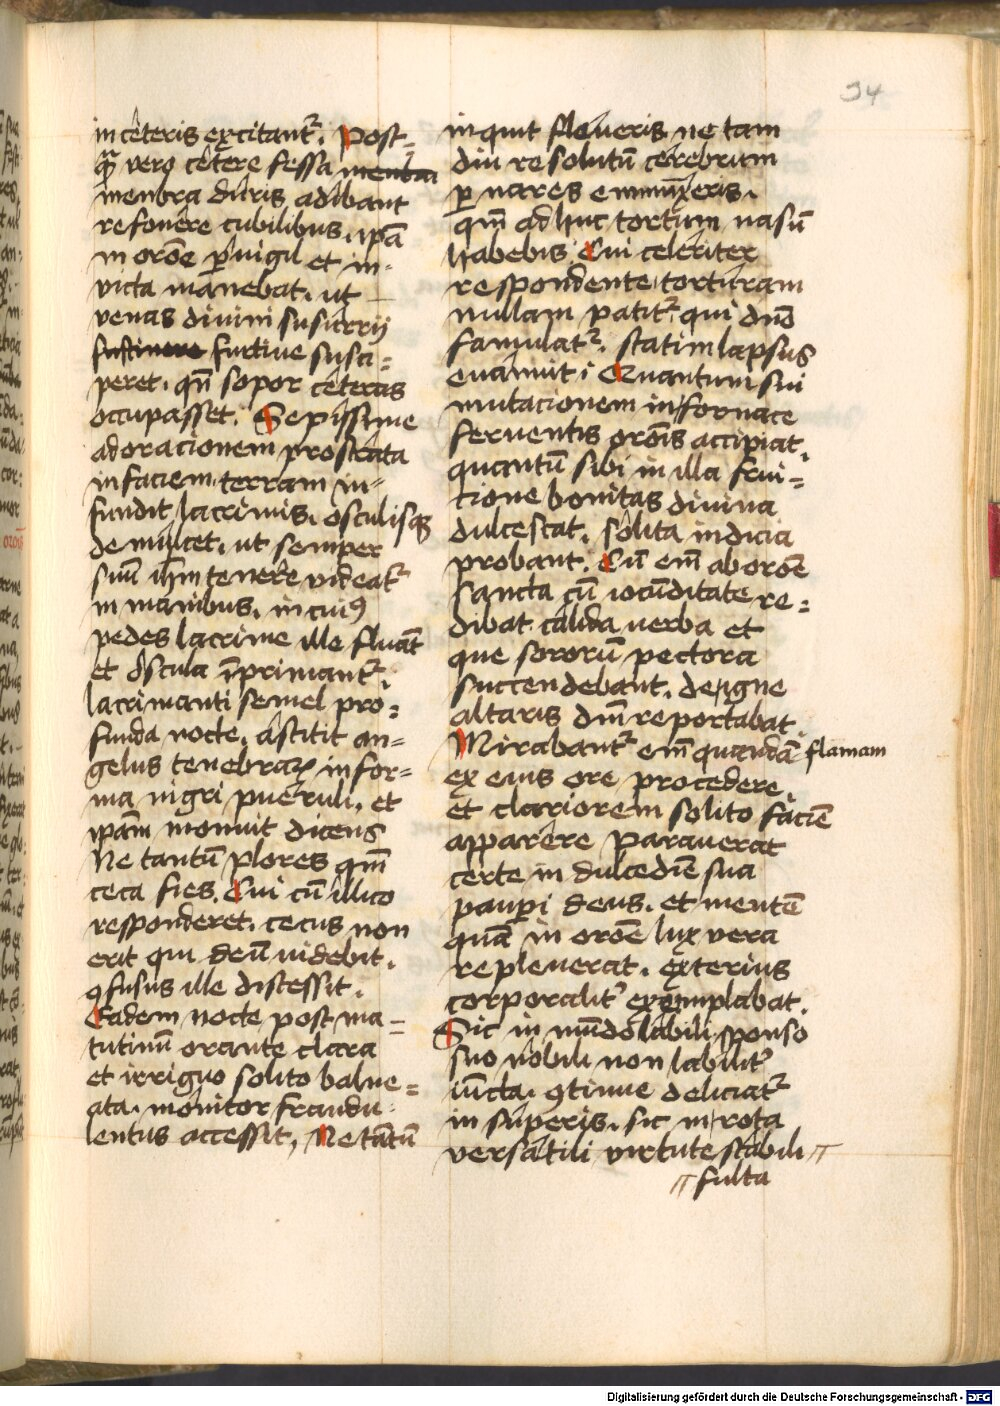 94
in ceteris excitant᷑. Post-
qᷓ vero cetere fessa menbra
menbra duris adibant
refouere cubilibus, ip̄a
in orōe p̱uigil et in-
victa manebat, ut
venas divini susurrij
sustinere furtiue susci=
peret, qn̄ sopor ceteras
occupasset. Sepissime
ad oracionem prostrata
in faciem, terram in-
fundit lacrimis, osculisqꝫ
demulcet, ut semper
suū ih̄m tenere videat᷑
in manibus, in cuiꝰ
pedes lacrime ille fluāt
et oscula īprimant᷑.
lacrimanti semel pro=
funda nocte, astitit an=
gelus tenebraꝝ in for=
ma nigri pueruli, et
ip̄am monuit dicens
Ne tantū plores qm̄
ceca fies. Cui cū illico
responderet, cecus non
erit qui deū uidebit,
ꝯfusus ille discessit.
Eadem nocte post ma=
tutinū orante clara
et irriguo solito balne=
ata, monitor fraudu-
lentus accessit, Ne tātū
inquit fleueris ne tam
diu resolutū cerebrum
p̱ nares emunxeris,
qm̄ adhuc tortum nasū
habebis. Cui celeriter
respondente torturam
nullam patit᷑ qui dn̄o
famulat᷑, statim lapsus
euanuit. Quantum sui
mutacionem in fornace
feruentis orōis accipiat,
quantū sibi in illa frui=
tione bonitas diuina
dulcescat, solita indicia
probant. Cū em̄ ab orōe
sancta cū iocūditate re=
dibat calida verba et
que sororū pectora
succendebant, de igne
altaris dn̄i reportabat.
Mirabant᷑ em̄ quandā flamam
ex eius ore procedere,
et clariorem solito faciē
apparere parauerat
certe in dulcedīe sua
paup̱i deus, et mentē
quā in orōe lux vera
repleuerat, exterius
corporalit᷑ exemplabat.
Sic in mūdo labili sponso
suo nobili non labilit᷑
iūcta, ꝯtinue deliciat᷑
in superis, sic in rota
versatili virtute stabili
fulta
Digitalisierung gefördert durch die Deutsche Forschungsgemeinschaft - DFG